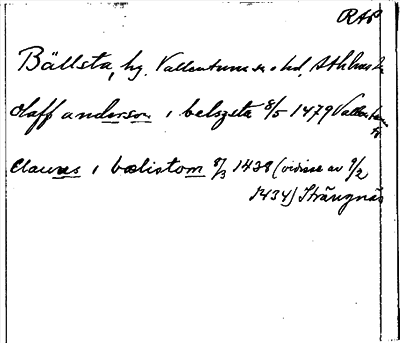 RAP
Bällsta, hg. Vallentuna sn o hd,
olaff anderson i belszeta 8/5 1479 Vallentuna
clauus i bælistom 8/3 1438 (vidisse av 9/2
1434) Strängnäs